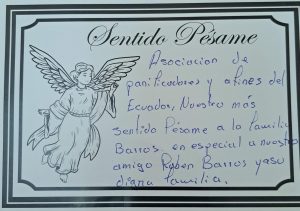 Sentido Pésame
Asociacion de
panificadores y afines del
Ecuador, Nuestro más
sentido Pésame a la familia
Barros en especial a nuestro
amigo Ruben Barros y a su
digna familia.